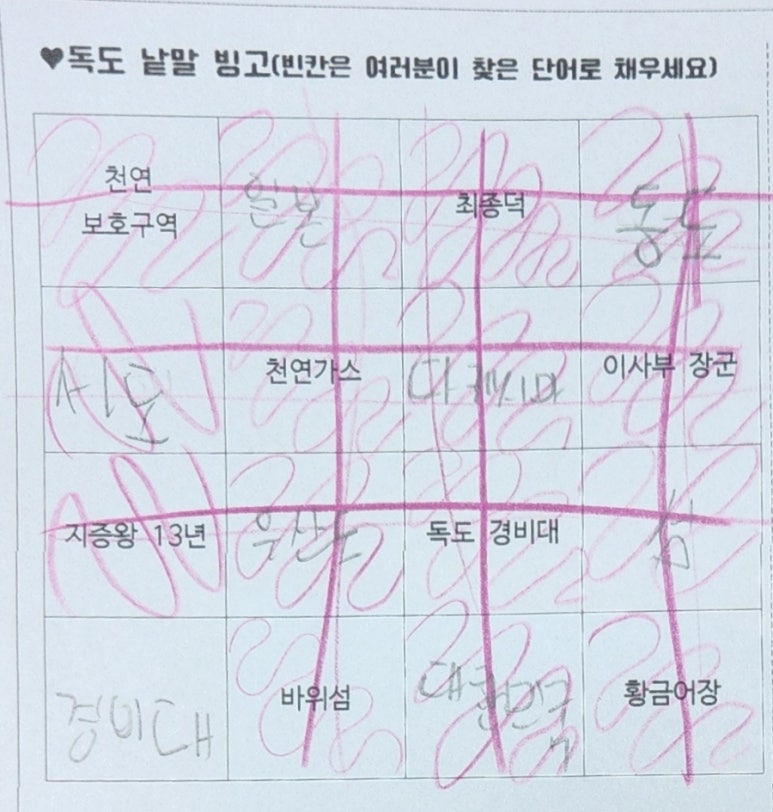 ♥독도 낱말 빙고(빈칸은 여러분이 찾은 단어로 채우세요)
천연
보호구역
일본
최종덕
동도
서도
천연가스
다케시마
이사부 장군
지증왕 13년
우산도
독도 경비대
섬
경비대
바위섬
대한민국
황금어장